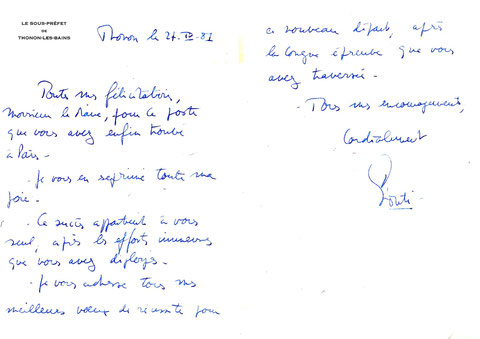 LE SOUS-PRÉFET
DE
THONON-LES-BAINS
Thonon le 21. IV. 81
Toutes mes félicitations,
Monsieur le Maire, pour le poste
que vous avez enfin trouvé
à Paris.
- Je vous en exprime toute ma
joie.
- Ce succès appartient à vous
seul, après les efforts immenses
que vous avez déployés.
- Je vous adresse tous mes
meilleurs voeux de réussite pour
ce nouveau départ, après
la longue épreuve que vous
avez traversée.
- Tous mes encouragements,
Cordialement